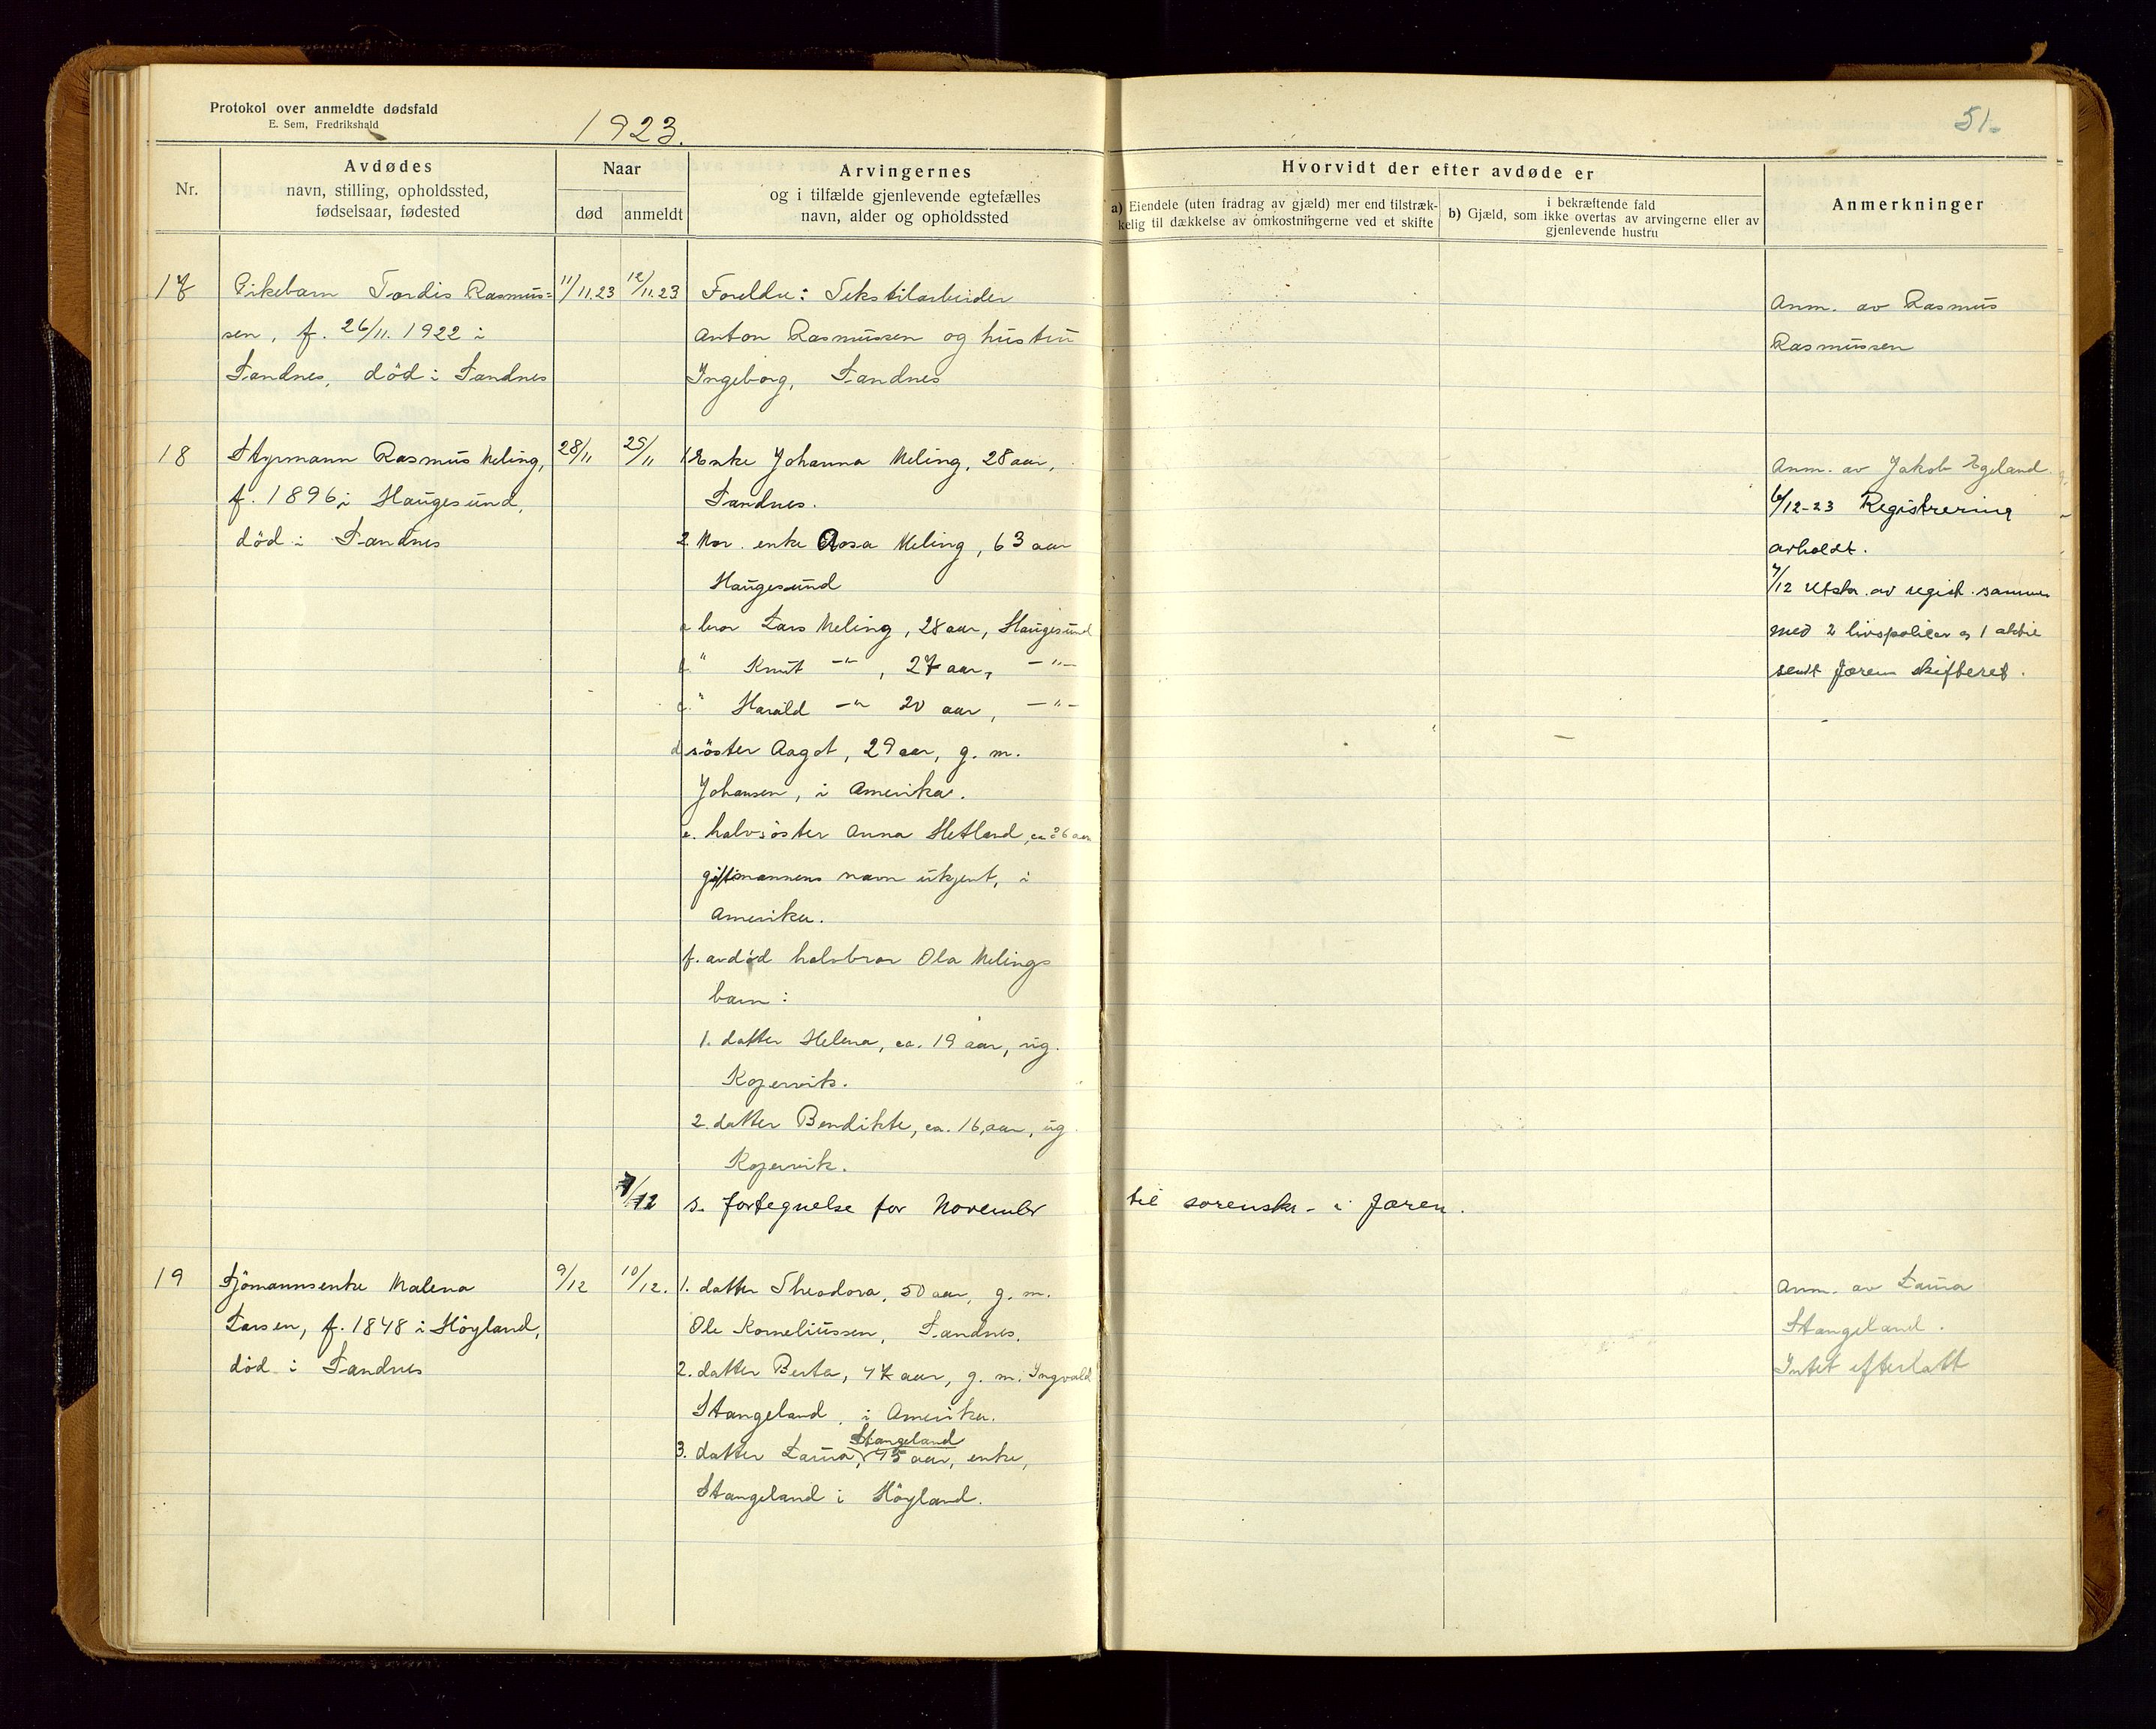 Protokol over anmeldte dødsfald
E. Sem, Fredrikshald
1923.
51.
Nr.
Avdødes
navn, stilling, opholdssted,
fødselsaar, fødested
Naar
død
anmeldt
Arvingernes
og i tilfælde gjenlevende egtefælles
navn, alder og opholdssted
Hvorvidt der efter avdøde er
a) Eiendele (uten fradrag av gjæld) mer end tilstræk-
kelig til dækkelse av omkostningerne ved et skifte
i bekræftende fald
b) Gjæld, som ikke overtas av arvingerne eller av
gjenlevende hustru
Anmerkninger
17
Pikebarn Tordis Rasmus=
sen, f. 26/11. 1922 i
Sandnes, död i Sandnes
11/11.23
12/11.23
Foreldre: Tekstilarbeider
Anton Rasmussen og hustru
Ingeborg, Sandnes
Anm. av Rasmus
Rasmussen
18
Styrmann Rasmus Meling,
f. 1896 i Haugesund,
död i Sandnes
28/11
29/11
1 Enke Johanna Meling, 28 aar,
Sandnes.
2. Mor enke Rosa Meling, 63 aar
Haugesund
a bror Lars Meling, 28 aar, Haugesund
b. " Knut -"- , 27 aar, -"-
c. " Harald -"- 20 aar, -"-
d söster Aagot, 29 aar, g. m.
Johansen, i Amerika.
e. halvsöster Anna Hetland, ca 36 aar
gift mannens navn ukjent, i
Amerika.
f. avdöd halvbror Ola Melings
barn:
1. datter Helena, ca. 19 aar, ug.
Kopervik.
2. datter Bendikte, ca. 16 aar, ug
Kopervik.
Anm. av Jakob Egeland.
6/12-23 Registrering
avholdt.
7/12 Utskr. av regist. sammen
med 2 livspoliser og 1 aktie
sendt Jæren skifteret.
7/12
s. fortegnelse for November til sorenskr. i Jæren.
19
Sjömannsenke Malena
Larsen, f. 1848 i Höyland,
död i Sandnes
9/12
10/12.
1. datter Theodora, 50 aar, g. m.
Ole Korneliussen, Sandnes.
2. datter Berta, 47 aar, g. m. Ingvald
Stangeland, i Amerika.
Stangeland
3. datter Laura, 45 aar, enke,
Stangeland i Höyland.
Anm. av Laura
Stangeland.
Intet efterlatt